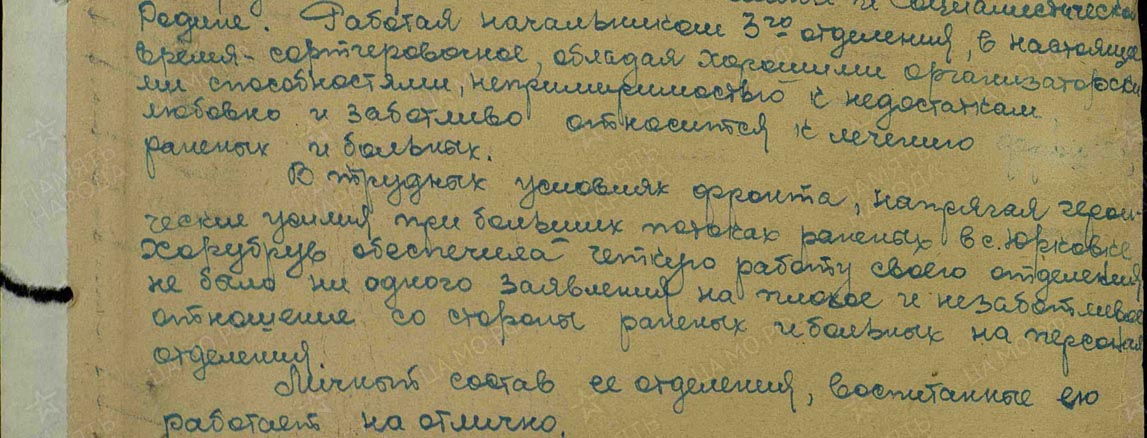 Родине. Работая начальником 3го отделения, в настояще
время - сортировочное, обладая хорошими организаторски
ми способностями, непримиримостью к недостаткам,
любовно и заботливо относится к лечению
раненых и больных.
В трудных условиях фронта, напрягая герои
ческие усилия при больших потоках раненых в с. Юрковке,
обеспечила четкую работу своего отделения
не было ни одного заявления на плохое и незаботливое
отношение со стороны раненых и больных на персонал
отделения.
Личный состав ее отделения, воспитанные ею
работает на отлично.